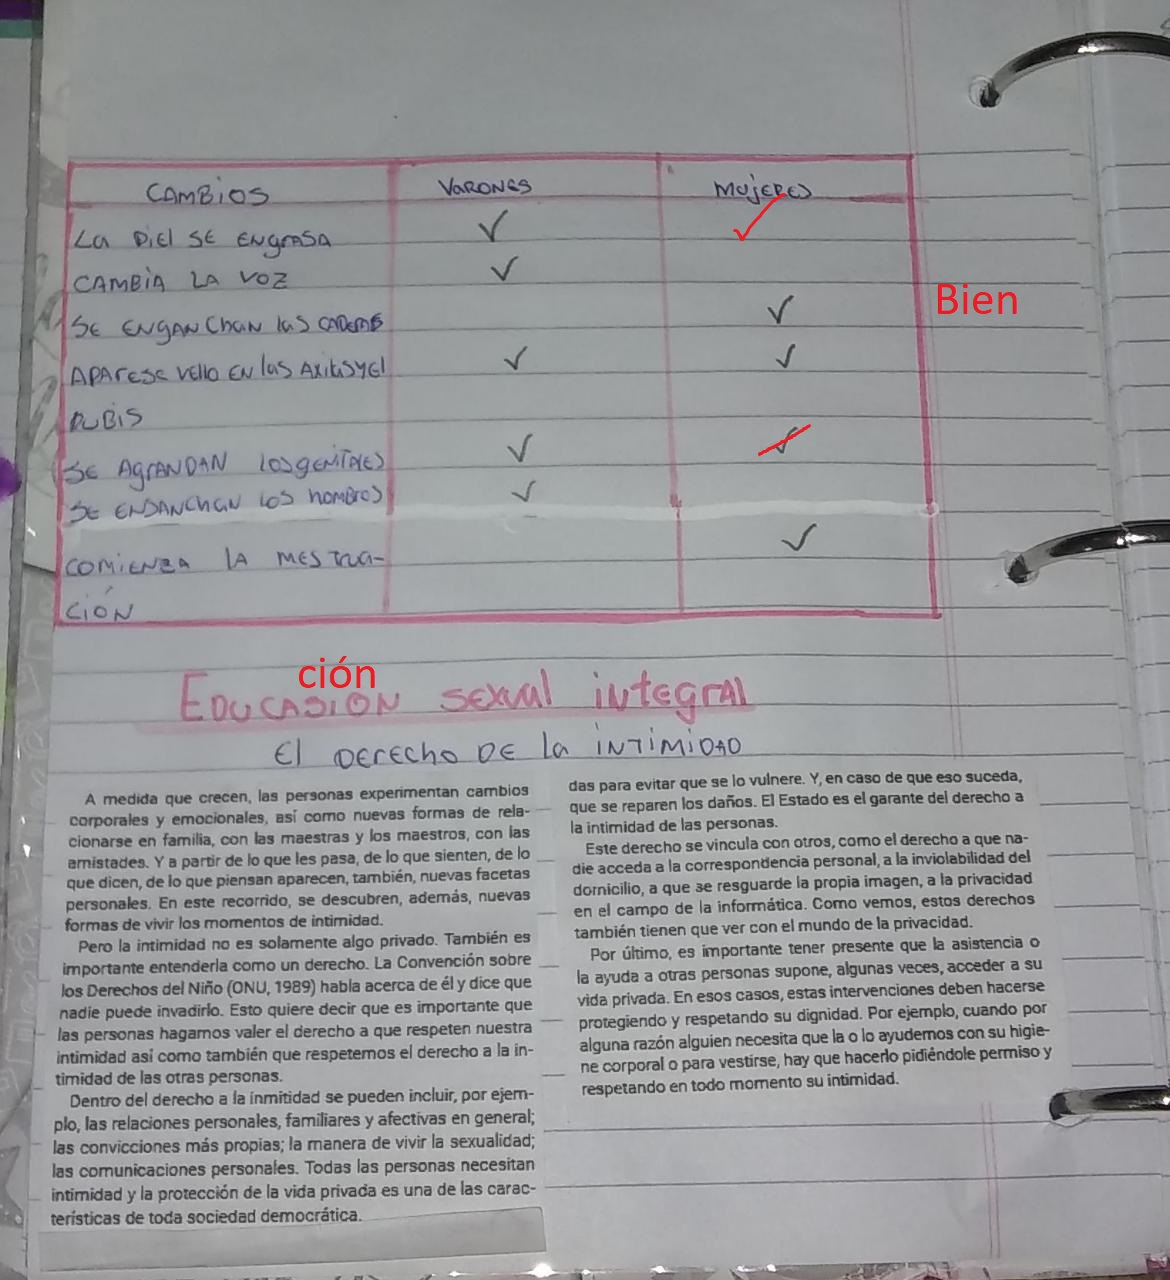 CAMBIOS VARONES MUJERES
LA PIEL SE ENGRASA ✓ ✓
CAMBIA LA VOZ ✓
SE ENGANCHAN LAS CADERAS ✓
Bien
APARESE VELLO EN LAS AXILAS Y EL ✓ ✓
PUBIS
SE AGRANDAN LOS GENITALES ✓ ✓
SE ENSANCHAN LOS HOMBROS ✓
COMIENZA LA MESTRUA- ✓
CIÓN
ción
EDUCASIÓN SEXUAL INTEGRAL
El DERECHO DE la INTIMIDAD
A medida que crecen, las personas experimentan cambios
corporales y emocionales, así como nuevas formas de rela-
cionarse en familia, con las maestras y los maestros, con las
amistades. Y a partir de lo que les pasa, de lo que sienten, de lo
que dicen, de lo que piensan aparecen, también, nuevas facetas
personales. En este recorrido, se descubren, además, nuevas
formas de vivir los momentos de intimidad.
Pero la intimidad no es solamente algo privado. También es
importante entenderla como un derecho. La Convención sobre
los Derechos del Niño (ONU, 1989) habla acerca de él y dice que
nadie puede invadirlo. Esto quiere decir que es importante que
las personas hagamos valer el derecho a que respeten nuestra
intimidad así como también que respetemos el derecho a la in-
timidad de las otras personas.
Dentro del derecho a la inmitidad se pueden incluir, por ejem-
plo, las relaciones personales, familiares y afectivas en general;
las convicciones más propias; la manera de vivir la sexualidad;
las comunicaciones personales. Todas las personas necesitan
intimidad y la protección de la vida privada es una de las carac-
terísticas de toda sociedad democrática.
das para evitar que se lo vulnere. Y, en caso de que eso suceda,
que se reparen los daños. El Estado es el garante del derecho a
la intimidad de las personas.
Este derecho se vincula con otros, como el derecho a que na-
die acceda a la correspondencia personal, a la inviolabilidad del
domicilio, a que se resguarde la propia imagen, a la privacidad
en el campo de la informática. Como vemos, estos derechos
también tienen que ver con el mundo de la privacidad.
Por último, es importante tener presente que la asistencia o
la ayuda a otras personas supone, algunas veces, acceder a su
vida privada. En esos casos, estas intervenciones deben hacerse
protegiendo y respetando su dignidad. Por ejemplo, cuando por
alguna razón alguien necesita que la o lo ayudemos con su higie-
ne corporal o para vestirse, hay que hacerlo pidiéndole permiso y
respetando en todo momento su intimidad.